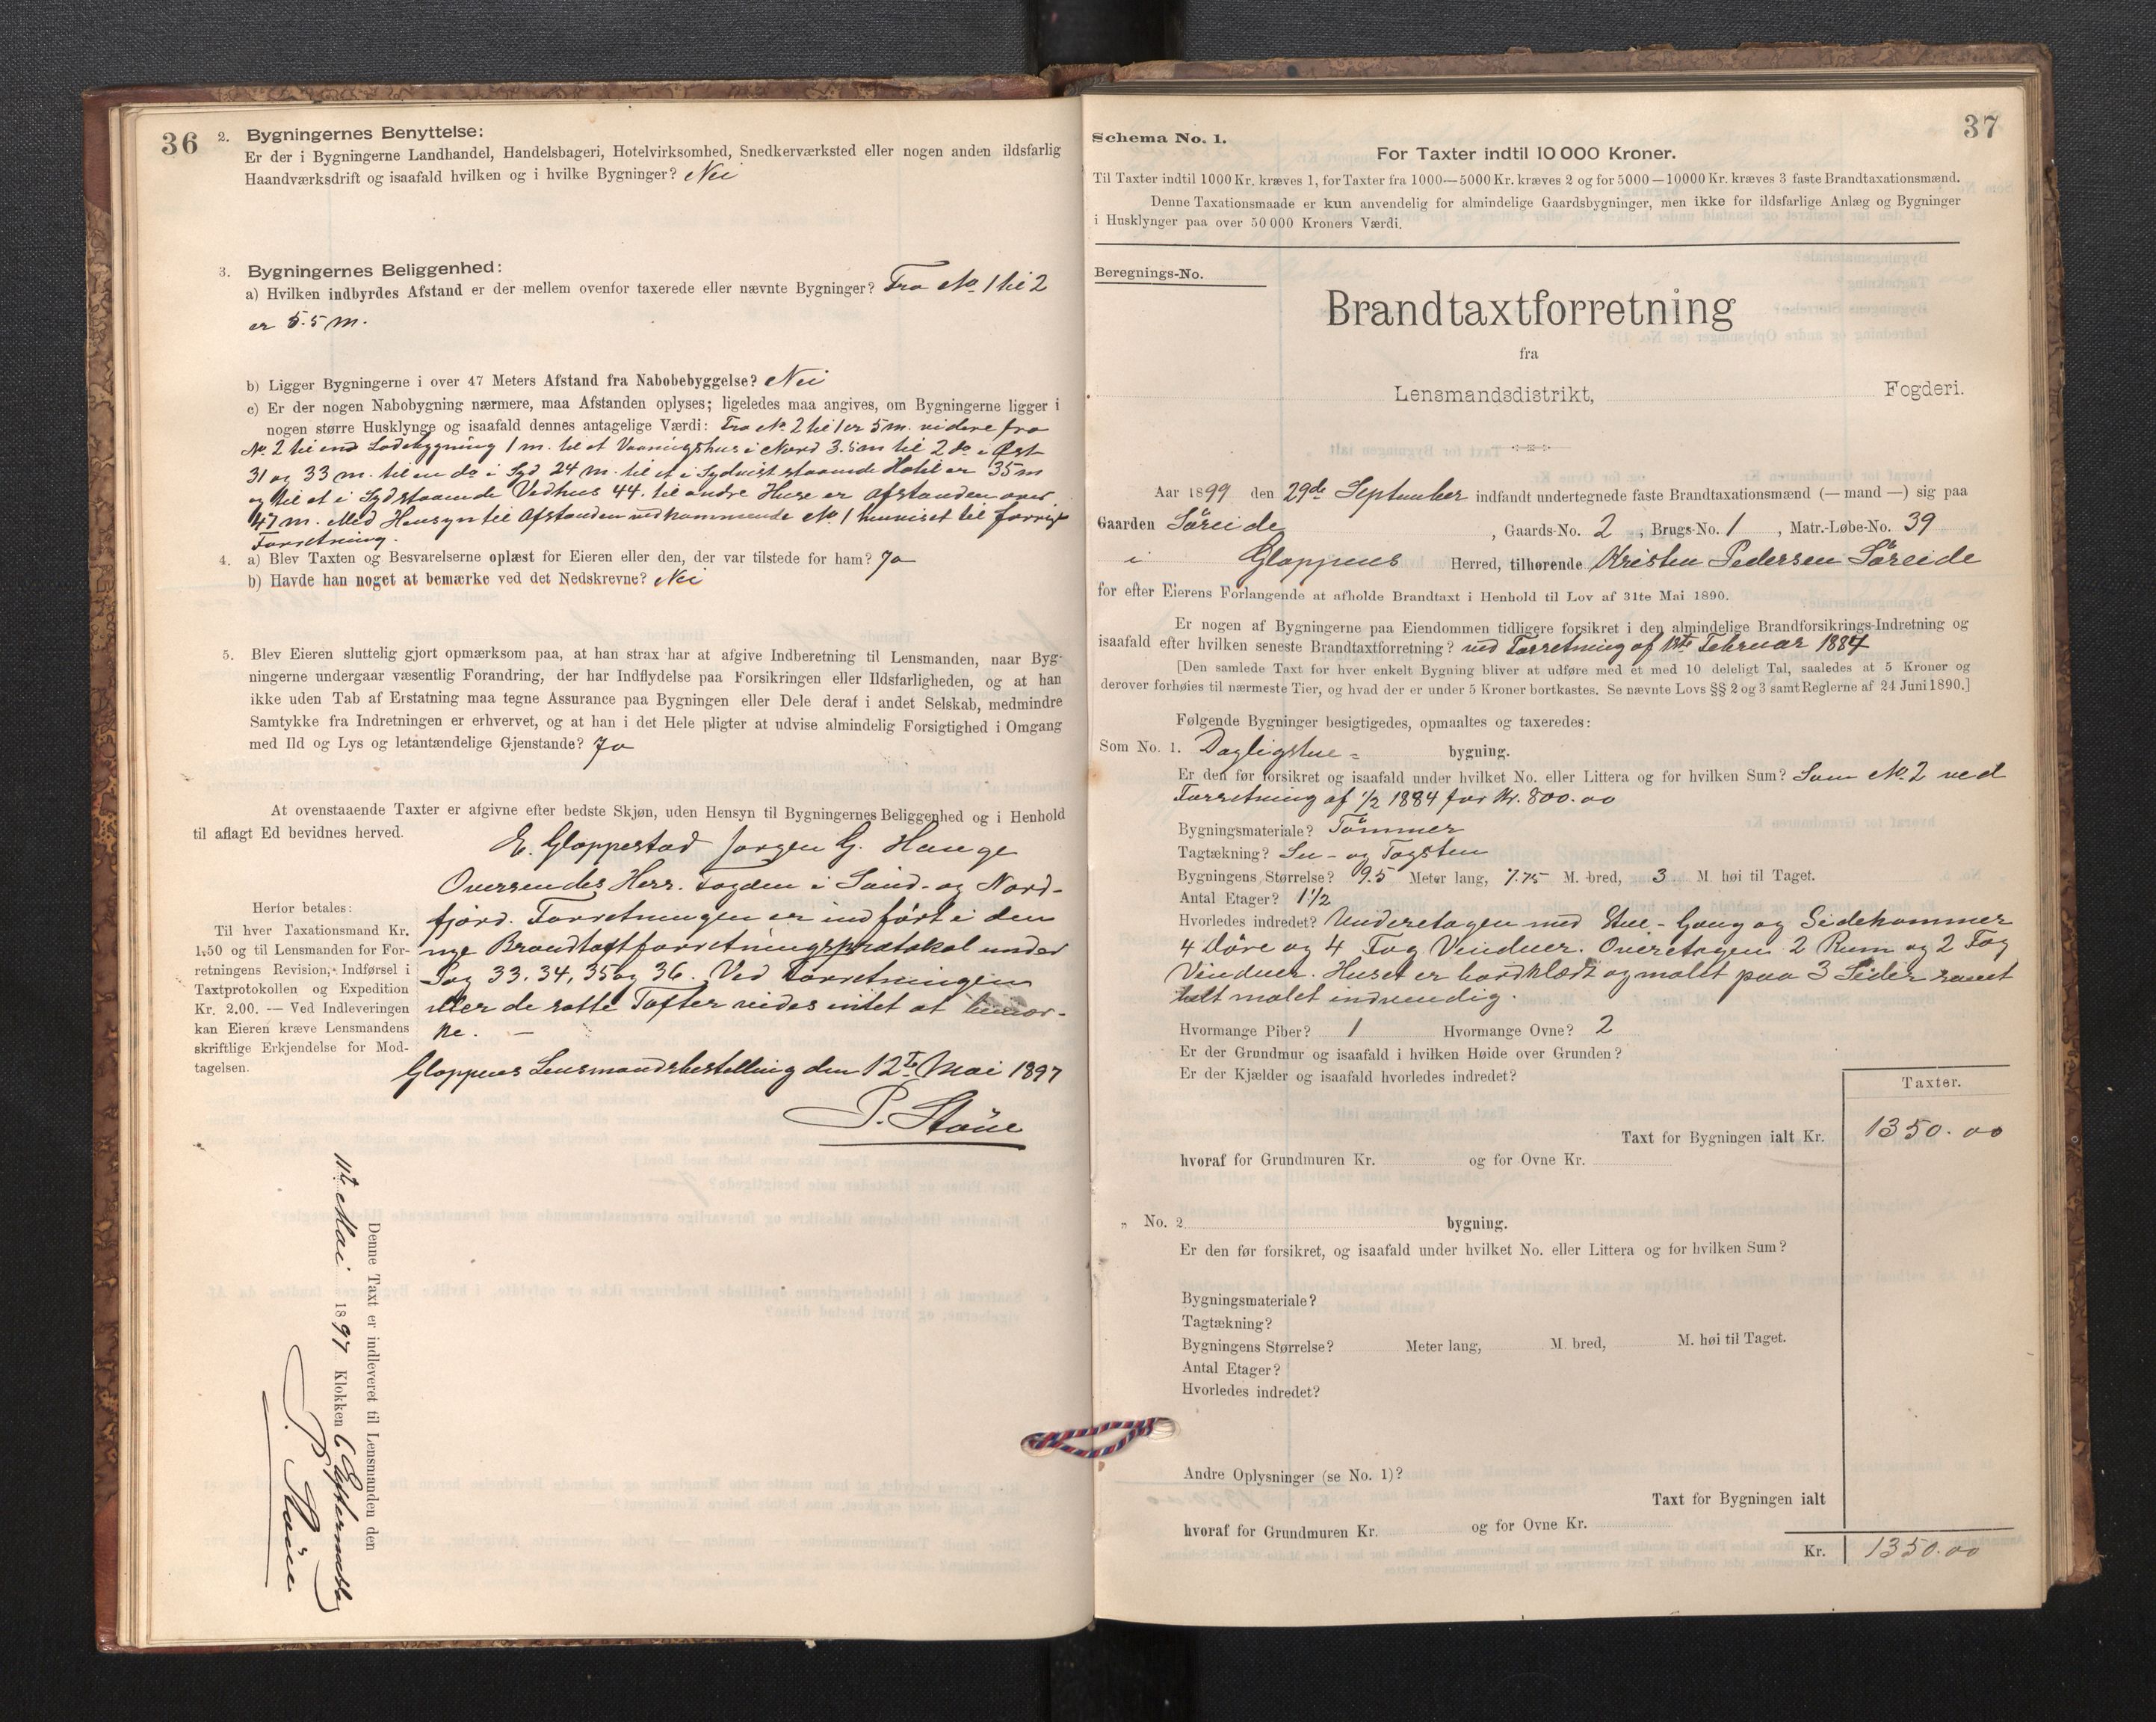 36
2. Bygningernes Benyttelse:
Er der i Bygningerne Landhandel, Handelsbageri, Hotelvirksomhed, Snedkerværksted eller nogen anden ildsfarlig
Haandværksdrift og isaafald hvilken og i hvilke Bygninger? Nei
3. Bygningernes Beliggenhed:
a) Hvilken indbyrdes Afstand er der mellem ovenfor taxerede eller nævnte Bygninger? Fra No 1 til 2
er 5.5 m.
b) Ligger Bygningerne i over 47 Meters Afstand fra Nabobebyggelse? Nei
c) Er der nogen Nabobygning nærmere, maa Afstanden oplyses; ligeledes maa angives, om Bygningerne ligger i
nogen større Husklynge og isaafald dennes antagelige Værdi: Fra No 2 til 1 er 5 m. videre fra
No. 2 til end Ladebygning 1 m. til et Vaaningshus i Nord 3.5 m til 2 do i Øst
31 og 33 m. til en do i Syd 24 m. til et i Sydvest staaende Hotel er 35 m
og til et i Syd staaende Vedhus 44. til andre Huse er Afstanden over
47 m. Med Hensyn til Afstanden vedkommende No 1 henvises til forrige
Forretning.
4. a) Blev Taxten og Besvarelserne oplæst for Eieren eller den, der var tilstede for ham? Ja
b) Havde han noget at bemærke ved det Nedskrevne? Nei
5. Blev Eieren sluttelig gjort opmærksom paa, at han strax har at afgive Indberetning til Lensmanden, naar Byg-
ningerne undergaar væsentlig Forandring, der har Indflydelse paa Forsikringen eller Ildsfarligheden, og at han
ikke uden Tab af Erstatning maa tegne Assurance paa Bygningen eller Dele deraf i andet Selskab, medmindre
Samtykke fra Indretningen er erhvervet, og at han i det Hele pligter at udvise almindelig Forsigtighed i Omgang
med Ild og Lys og letantændelige Gjenstande? Ja
At ovenstaaende Taxter er afgivne efter bedste Skjøn, uden Hensyn til Bygningernes Beliggenhed og i Henhold
til aflagt Ed bevidnes herved.
E. Gloppestad Jørgen G. Hauge
Oversendes Herr. Fogden i Sønd- og Nord-
fjord. Forretningen er indført i den
nye Brandtaxtforretningsprotokol under
Pag 33, 34, 35 og 36. Ved Forretningen
eller de satte Taxter vides intet at bemær-
ke. —
Gloppens Lensmandsbestilling den 12te Mai 1897
P. Støue
Herfor betales:
Til hver Taxationsmand Kr.
1.50 og til Lensmanden for For-
retningens Revision, Indførsel i
Taxtprotokollen og Expedition
Kr. 2.00. — Ved Indleveringen
kan Eieren kræve Lensmandens
skriftlige Erkjendelse for Mod-
tagelsen.
Denne Taxt er indleveret til Lensmanden den
11te Mai 1897 Klokken 6 Eftermiddag
P. Støue
37
Schema No. 1.
For Taxter indtil 10 000 Kroner.
Til Taxter indtil 1000 Kr. kræves 1, for Taxter fra 1000—5000 Kr. kræves 2 og for 5000—10000 Kr. kræves 3 faste Brandtaxationsmænd.
Denne Taxationsmaade er kun anvendelig for almindelige Gaardsbygninger, men ikke for ildsfarlige Anlæg og Bygninger
i Husklynger paa over 50 000 Kroners Værdi.
Beregnings-No.
Brandtaxtforretning
fra
Lensmandsdistrikt, Fogderi.
Aar 1899 den 29de September indfandt undertegnede faste Brandtaxationsmænd (— mand —) sig paa
Gaarden Søreide, Gaards-No. 2, Brugs-No. 1, Matr.-Løbe-No. 39
i Gloppens Herred, tilhørende Kristen Pedersen Søreide
for efter Eierens Forlangende at afholde Brandtaxt i Henhold til Lov af 31te Mai 1890.
Er nogen af Bygningerne paa Eiendommen tidligere forsikret i den almindelige Brandforsikrings-Indretning og
isaafald efter hvilken seneste Brandtaxtforretning? ved Forretning af 1ste Februar 1884
[Den samlede Taxt for hver enkelt Bygning bliver at udføre med et med 10 deleligt Tal, saaledes at 5 Kroner og
derover forhøies til nærmeste Tier, og hvad der er under 5 Kroner bortkastes. Se nævnte Lovs §§ 2 og 3 samt Reglerne af 24 Juni 1890.]
Følgende Bygninger besigtigedes, opmaaltes og taxeredes:
Som No. 1. Dagligstue- bygning.
Er den før forsikret og isaafald under hvilket No. eller Littera og for hvilken Sum? Som No. 2 ved
Forretning af 1/2 1884 for Kr. 800.00
Bygningsmateriale? Tømmer
Tagtækning? Su- og Tagsten
Bygningens Størrelse? 9.5 Meter lang, 7.75 M. bred, 3 M. høi til Taget.
Antal Etager? 1½
Hvorledes indredet? Underetagen med Stue- Gang og Sidekammer
4 Døre og 4 Fag Vinduer. Overetagen 2 Rum og 2 Fag
Vinduer. Huset er bordklædt og malet paa 3 Sider samt
helt malet indvendig.
Hvormange Piber? 1 Hvormange Ovne? 2
Er der Grundmur og isaafald i hvilken Høide over Grunden?
Er der Kjælder og isaafald hvorledes indredet?
Taxter.
Taxt for Bygningen ialt Kr. 1350.00
hvoraf for Grundmuren Kr. og for Ovne Kr.
„ No. 2 bygning.
Er den før forsikret, og isaafald under hvilket No. eller Littera og for hvilken Sum?
Bygningsmateriale?
Tagtækning?
Bygningens Størrelse? Meter lang, M. bred, M. høi til Taget.
Antal Etager?
Hvorledes indredet?
Andre Oplysninger (se No. 1)?
Taxt for Bygningen ialt
hvoraf for Grundmuren Kr. og for Ovne Kr.
Kr. 1350.00